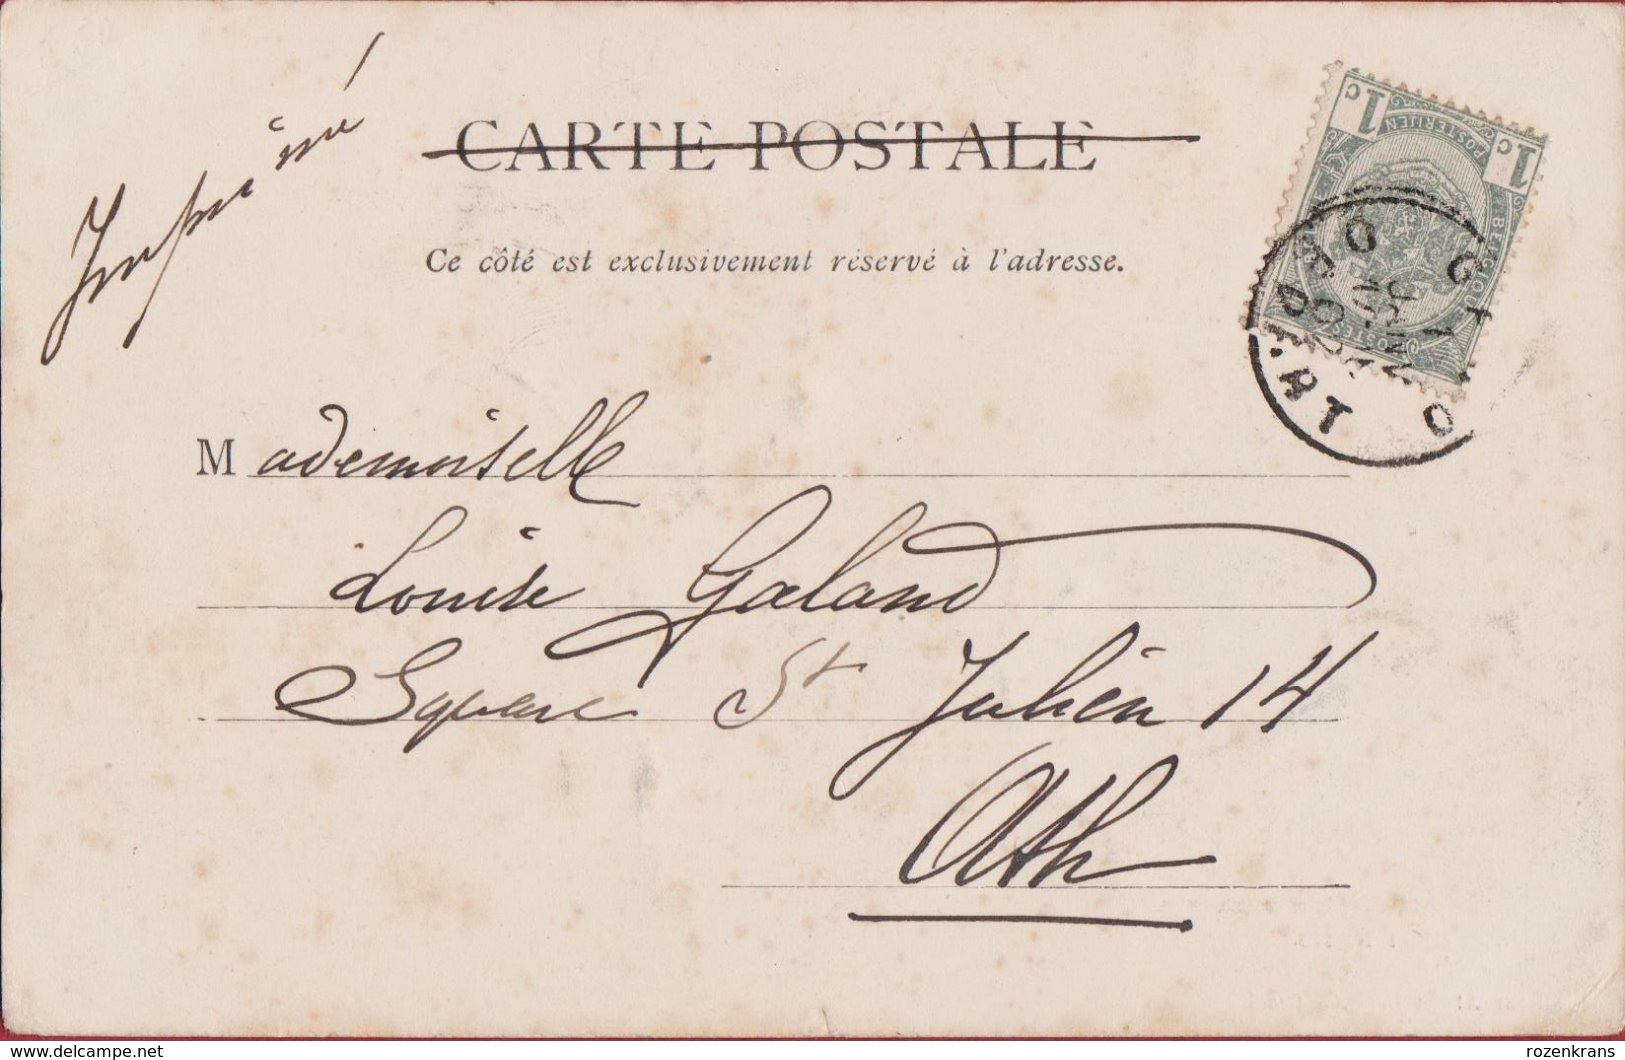 Imprimé
CARTE POSTALE
Ce côté est exclusivement réservé à l'adresse.
1c 1c
POSTERIJEN
BELGIQUE
POSTES
Mademoiselle
Louise Galand
Square St Julien 14
Ath
delcampe.net
rozenkrans